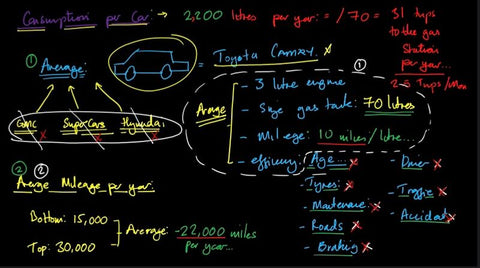 Consumption per Car: → 2,200 litres per year: = / 70 = 31 trips
to the gas
Station
per year...
2-5 Trips/Mon
① Average:
= Toyota Camry. x
①
Average
- 3 litre engine
- Size gas tank: 70 litres
- Mileage: 10 miles/litre...
- efficiency:
GMC x Supercars x Hyundai x
- Age... x
- Tyres: x
- Maintenance: x
- Roads x
- Braking x
- Driver x
- Traffic x
- Accident x
② ②
Average Mileage per year:
Bottom: 15,000
Top: 30,000
Average: ~22,000 miles
per year...